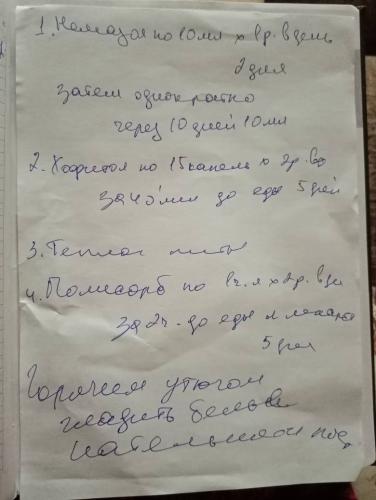 1. Немозол по 10 мл х р. в день
2 дня
затем однократно
через 10 дней 10 мл
2. Хофитол по 15 капель х 2р. в
за 40 мин до еды 5 дней
3. Теплое
4. Полисорб по 1 ч.л х 2р. в
за 2ч. до еды и
5 дней
Горячим утюгом
гладить белье
нательное